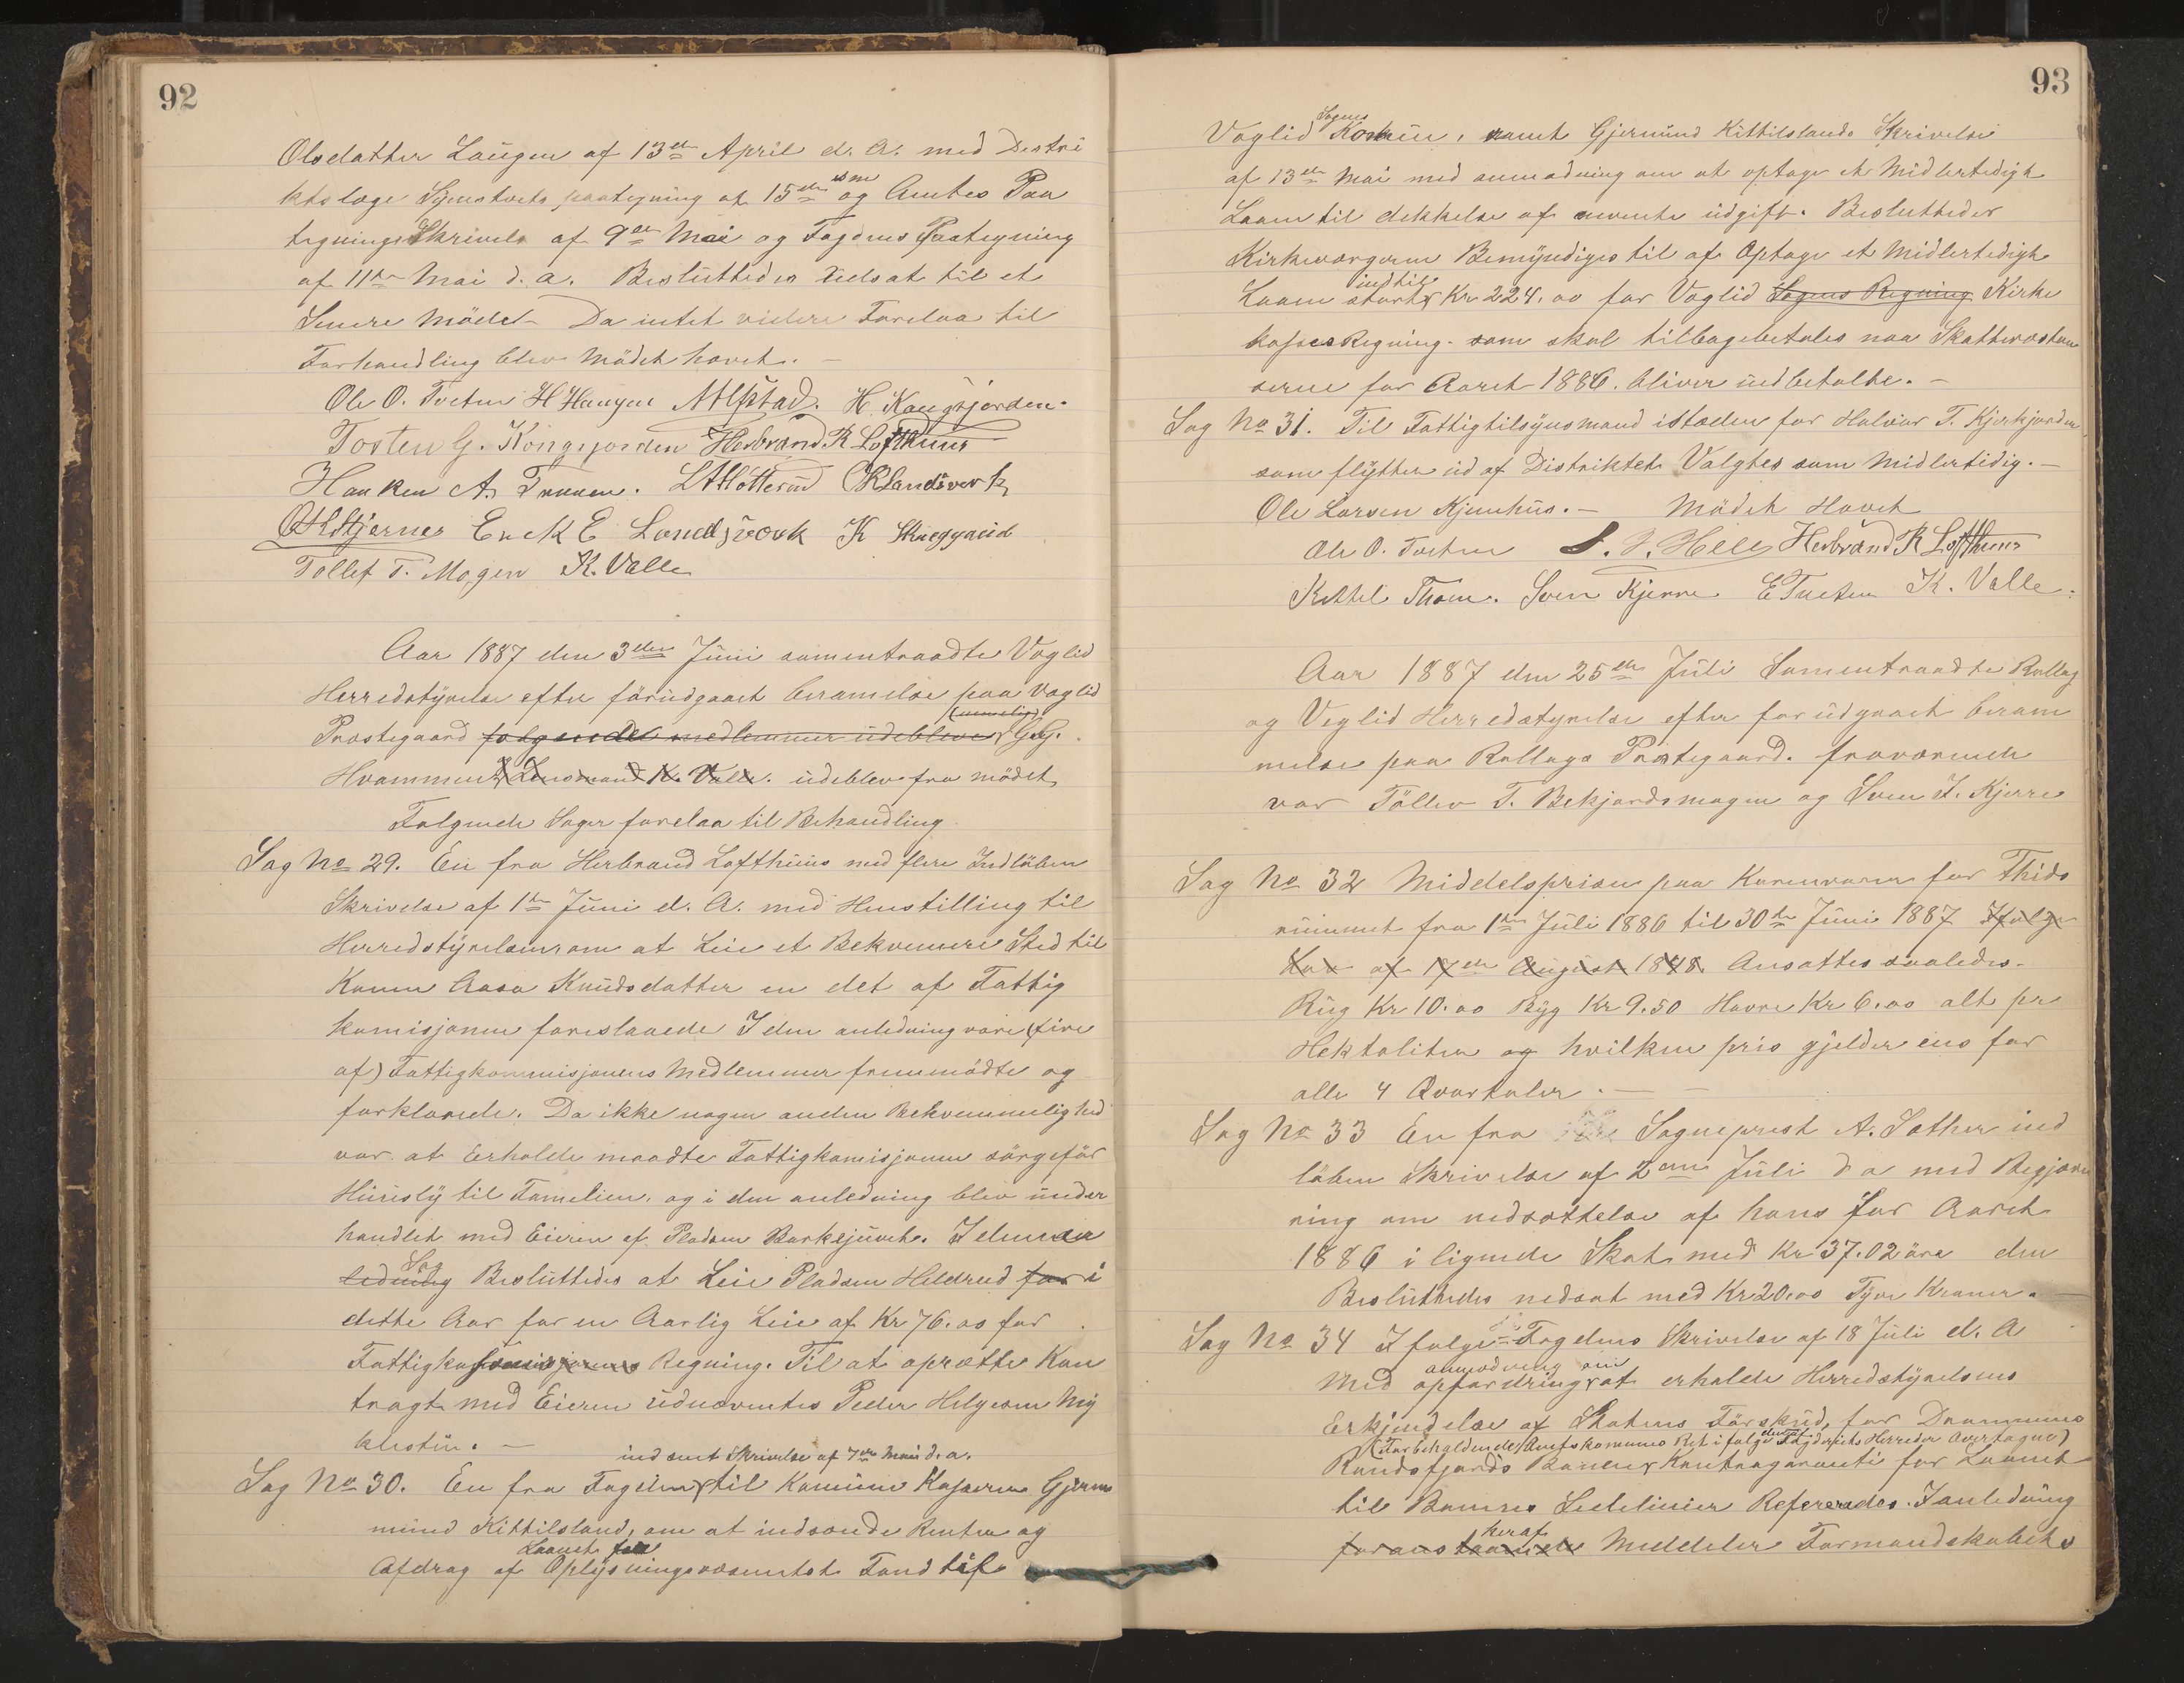 92
Olsdatter Laugen af 13de April d. A. med Destri
ktslæge paategning af 15de dsm og Amtes Paa
tegnings Skrivels af 9de Mai og Fogdens Paategning
af 11te Mai d. a. Besluttedes udsat til et
Senere Mödet – Da intet videre Forelaa til
Forhandling blev Mödet hævet. –
Ole O. Tveten H Haugen H. Kongsjorden.
Tosten G. Kongsjorden Herbrand. R Lofthuus
Haaken A. OK Landsverk
Erik E Landsverk K
Tollef T. Mogen K. Valle
Aar 1887 den 3die Juni samentraadte Væglid
Herredstyrelse efter forudgaaet beramelse paa Væglid
Præstegaard følgende medlemmer udebleve (nemlig) G. G.
Hvammen, Lensmand K. Valle. udeblev fra mödet,
Følgende Sager forelaa til Behandling
Sag No 29. En fra Herbrand Lofthuus med flere Indlöben
Skrivelse af 1te Juni d. A. med Henstilling til
Herredstyrelsen om at Leie et Bekvemere Sted til
Konen Aasa Knudsdatter en det af Fattig
komisjonen foreslaaede I den anledning vare (fire
af) Fattigkommisjonens Medlemmer fremmödte og
forklarede. Da ikke nogen anden Bekvemmelighed
var at Erholde maadte Fattigkomisjonen sörge för
Huusly til Familien. og i den anledning blev under
handlet med Eieren af Pladsen Barksjuvet. I denne an
ledning Sag Besluttedes at Leie Pladsen Heldrud for i
dette Aar for en Aarlig Leie af Kr 76.00 for
Fattigkassens Regning. Til at oprætte Kon
tragt med Eieren udnævntes Peder Helgesen My
klestu. –
ind sent Skrivelse af 7de Mai d. a.
Sag No 30. En fra Fogden til Komune Kasseren Gjerm
mund Kittilsland, om at indsænde Renten og
Laanet
Afdrag af Oplysningsvæsentets Fond til
93
Væglid Sogns Komune, samt Gjermund Kittilslands Skrivelse
af 13de Mai med anmodning om at optage et Midlertedigt
Laan til dekkelse af nævnte udgift. Besluttedes
Kirkeværgeren Bemyndiges til at Optage et Midlertedigt
Laan stort indtil Kr 224.00 for Væglid Sogns Regning Kirke
kasses Regning. som skal tilbagebetales naar Skatterestan
serne for Aaret 1886. bliver indbetalte. –
Sag No 31. Til Fattigtilsynsmand istæden for Halvor T. Kjerkjorden
som flytter ud af Distriktet Valgtes som Midlertidig. –
Ole Larsen Kjemhus. – Mödet Hævet
Ole O. Tveten Herbrand R Lofthuus
Kittil Thoen. Sven Kjerre E Tveten K. Valle.
Aar 1887 den 25de Juli Samentraadte Rollag
og Veglid Herredstyrelse efter forudgaaet beram
melse paa Rollags Præstegaard. fraværende
var Töllev T. Bekjordsmogen og Sven T. Kjerre
Sag No 32 Middelsprisen paa Kornvarer for Thids
rummet fra 1ste Juli 1886 til 30te Juni 1887 Ifølge
Lov af 17de August 1848. Ansattes saaledes.
Rug Kr 10.00 Byg Kr 9.50 Havre Kr 6.00 alt pr
Hektoliter og hvilken pris gjelder ens for
alle 4 Qvartaler. –
Sag No 33 En fra Sogneprest A. Sæther ind
löben Skrivelse af 2den Juli d a med Begjæren
ring om nedsættelse af hans for Aaret
1886 i lignede Skat med Kr 37.02 öre den
Besluttedes nedsat med Kr 20.00 Tyve Kroner.
Sag No 34 I følge Fogdens Skrivelse af 18 Juli d. A
anmodning om
Med opfordring at erholde Herredstyrelsens
Erkjendelse af Statens Forskud, for Drammens
(Forbeholdende Amtskomunes Ret i følge den at Fogderiets Herreder Overtagne)
Randsfjords Banens Kontragaranti for Laanet
til Banens Sidelinier Refereredes. I anledning
heraf
foranstaaende Meddeler Formandskabets